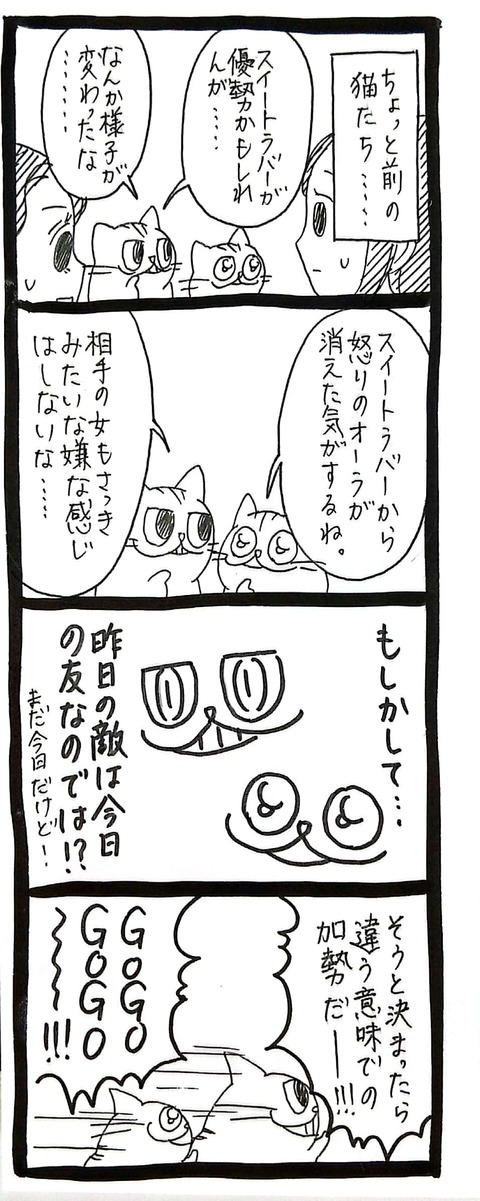 ちょっと前の
猫たち……
スイートラバーが
優勢かもしれ
んが……
なんか様子が
変わったな
……
スイートラバーから
怒りのオーラが
消えた気がするね。
相手の女もさっき
みたいな嫌な感じ
はしないな……
もしかして…
昨日の敵は今日
の友なのでは!?
まだ今日だけど!
そうと決まったら
違う意味での
加勢だー!!!
GoGo
GoGo
〜〜!!!